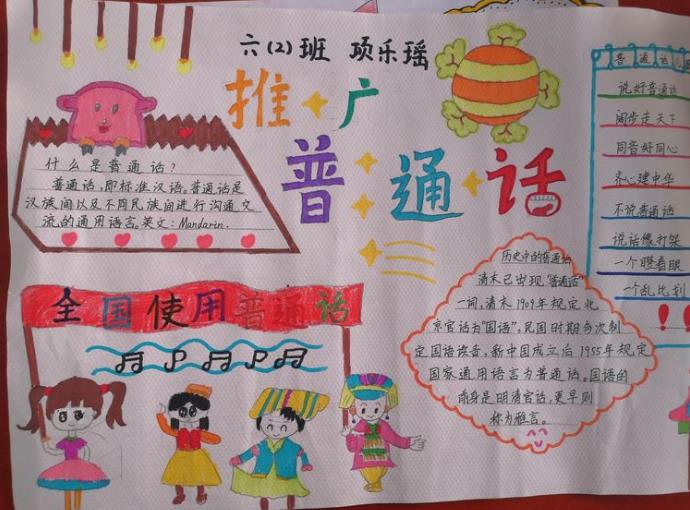 六(2)班 项乐瑶
推广
普通话
什么是普通话?
普通话,即标准汉语,普通话是
汉族间以及不同民族间进行沟通交
流的通用语言。英文:Mandarin.
全国使用普通话
历史中的普通话
清末已出现"普通话"
一词,清末1909年规定北
京官话为"国语",民国时期多次制
定国语读音,新中国成立后1955年规定
国家通用语言为普通话。国语的
前身是明清官话,更早则
称为雅言。
普通话
说好普通话
阔步走天下
同音好同心
齐心建中华
不说普通话
说话像打架
一个瞪着眼
一个乱比划
!!